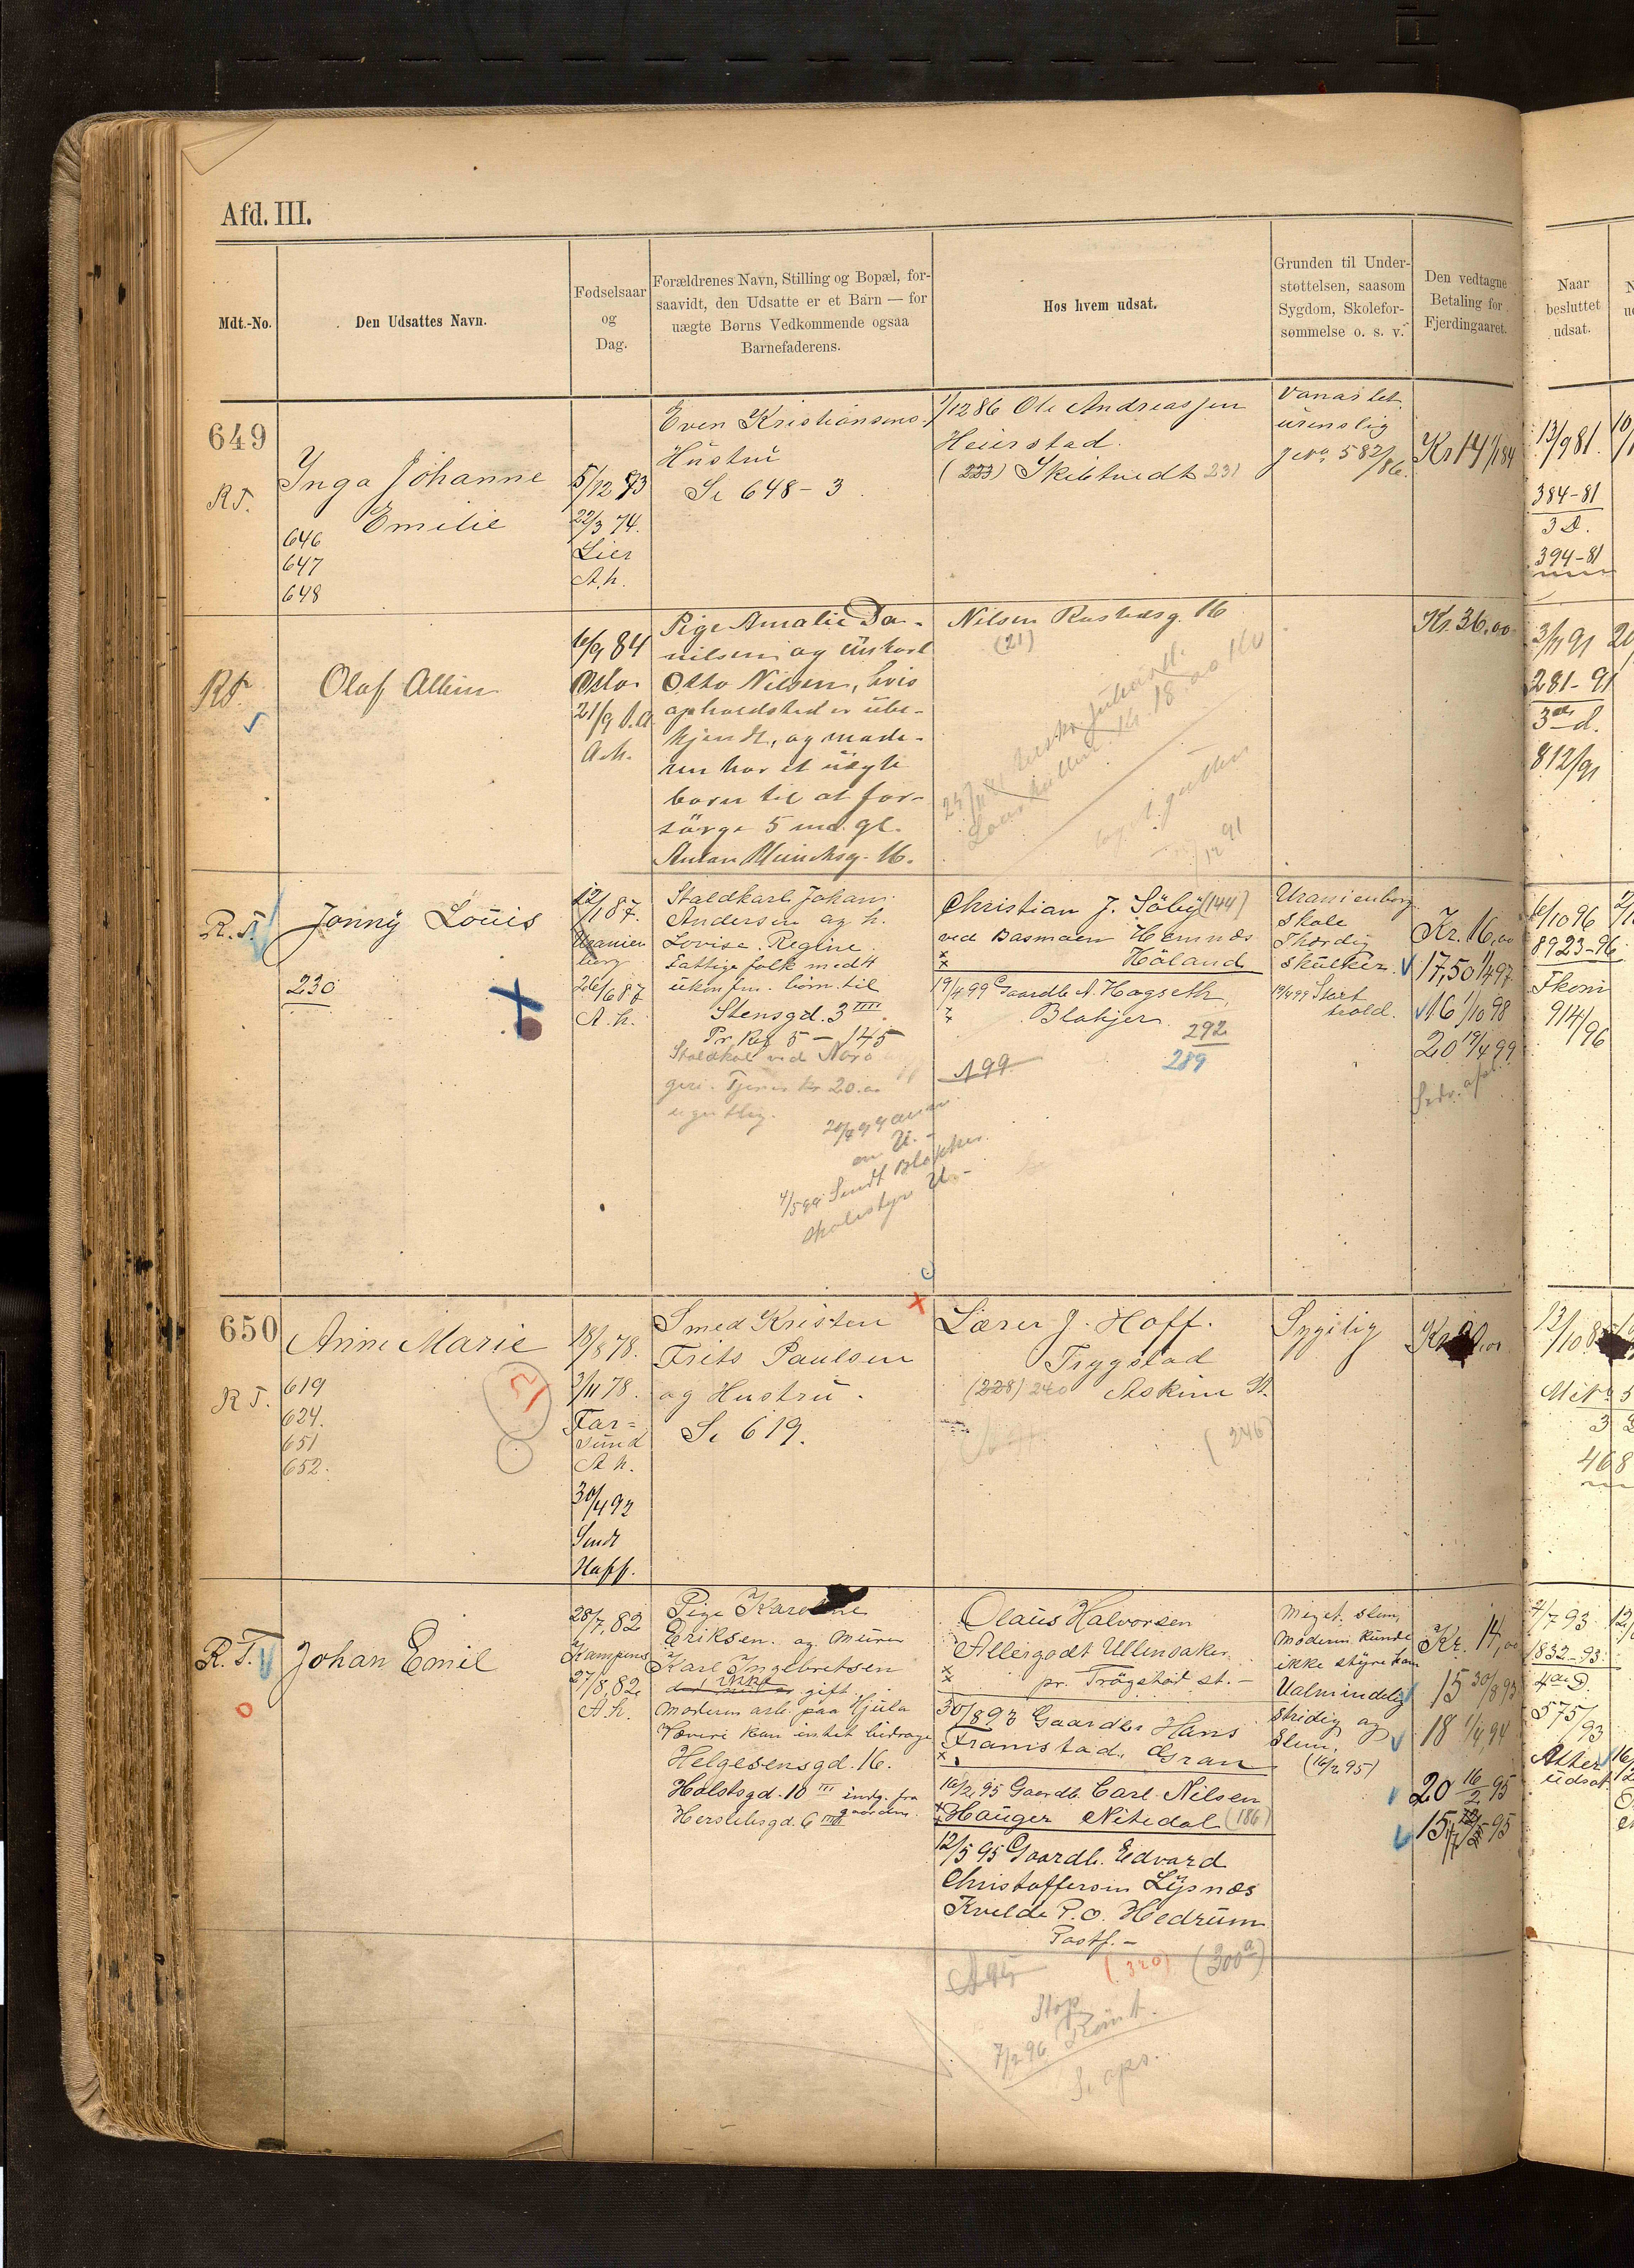 Afd. III.
Mdt.-No.
Den Udsattes Navn.
Fødselsaar
og
Dag.
Forældrenes Navn, Stilling og Bopæl, for-
saavidt, den Udsatte er et Barn — for
uægte Børns Vedkommende ogsaa
Barnefaderens.
Hos hvem udsat.
Grunden til Under-
støttelsen, saasom
Sygdom, Skolefor-
sømmelse o. s. v.
Den vedtagne
Betaling for
Fjerdingaaret.
Naar
besluttet
udsat.
649
R T.
Inga Johanne
Emilie
646
647
648
5/12 73
22/3 74.
Lier
A. h.
Even Kristiansens
Hustru
Se 648 - 3
1/12 86 Ole Andreassen
Heierstad
(223) Skibtvedt 231
Vanartet
urenslig
582/86.
Kr 14 1/1 84
13/9 81.
384-81
3 D.
394-81
R T.
Olaf Albin
6/9 84
Oslo
21/9 s.a.
A. h.
Pige Amalie Da-
nilsen og Uskort
Otto Nilsen, hvis
opholdsted er ube-
kjendt, og mode-
ren har et uægte
barn til at for-
sörge 5 md. gl.
Anton Munchsg. 16.
Nilsen Rustadsg. 16
(21)
Kr. 36,00
3/11 91
281-91
3die d.
812/91
R. T.
Jonny Louis
230
12/1 87.
Uranien
berg
26/6 87
A. h.
Staldkarl Johan
Andersen og h.
Lovise Regine
Fattige folk med 4
ukonfirm. börn til
Stensgd. 3 IIII.
Pr. Reg 5 - 145
Staldkarl ved Nora
Tjener kr 20.00
ugentlig.
4/5 99 Sendt Blakjer
skolestyre U. -
Christian J. Söby (144)
ved Basmoen Hemnæs
Höland
19/4 99 Gaardb. A. Hagseth
Blakjer
292
289
A 99
Uranienborg
Skole
Ihærdig
skulker
19/4 99 Start
hold.
Kr. 16,00
17,50 1/4 97
16 1/10 98
20 19/4 99
6/10 96
8923-96
Fkom
914/96
650
R T.
Anne Marie
619
624.
651
652.
18/8 78.
3/11 78.
Far-
sund
A h.
30/4 92
Sendt
Hoff.
Smed Kristen
Frits Paulsen
og Hustru.
Se 619.
Lærer J. Hoff.
Trygstad
(228) 240 Askim St.
(246)
Sygelig
468
R. T.
Johan Emil
28/7, 82
Kampens
27/8, 82
A. h.
Pige Karoline
Eriksen og murer
Karl Ingebretsen
ikke
gift
Moderen arb. paa Hjula
Væveri kan intet bidrage
Helgesensgd. 16.
Holstsgd. 10 III indg. fra
gaarden.
Herslebsgd. 6 III
Olaus Halvorsen
Allergodt Ullensaker
pr. Trögstad st. -
30/8 93 Gaardbr Hans
Framstad, Gran
16/2 95 Gaardb. Carl Nilsen
Hauger Nitedal (186)
12/5 95 Gaardb. Edvard
Christoffersen Lysnæs
Kvelde P.O. Hedrum
Postf. -
A 95 (320) (300a)
Stop
7/2 96 Römt.
Meget slem,
Moderen kunde
ikke styre ham
Ualmindelig
stridig og
slem.
(16/2 95)
Kr. 14,00
15 30/8 93
18 1/4, 94
20 16/2 95
15
4/7 93
1832-93
4de D.
575/93
Atter
udsat